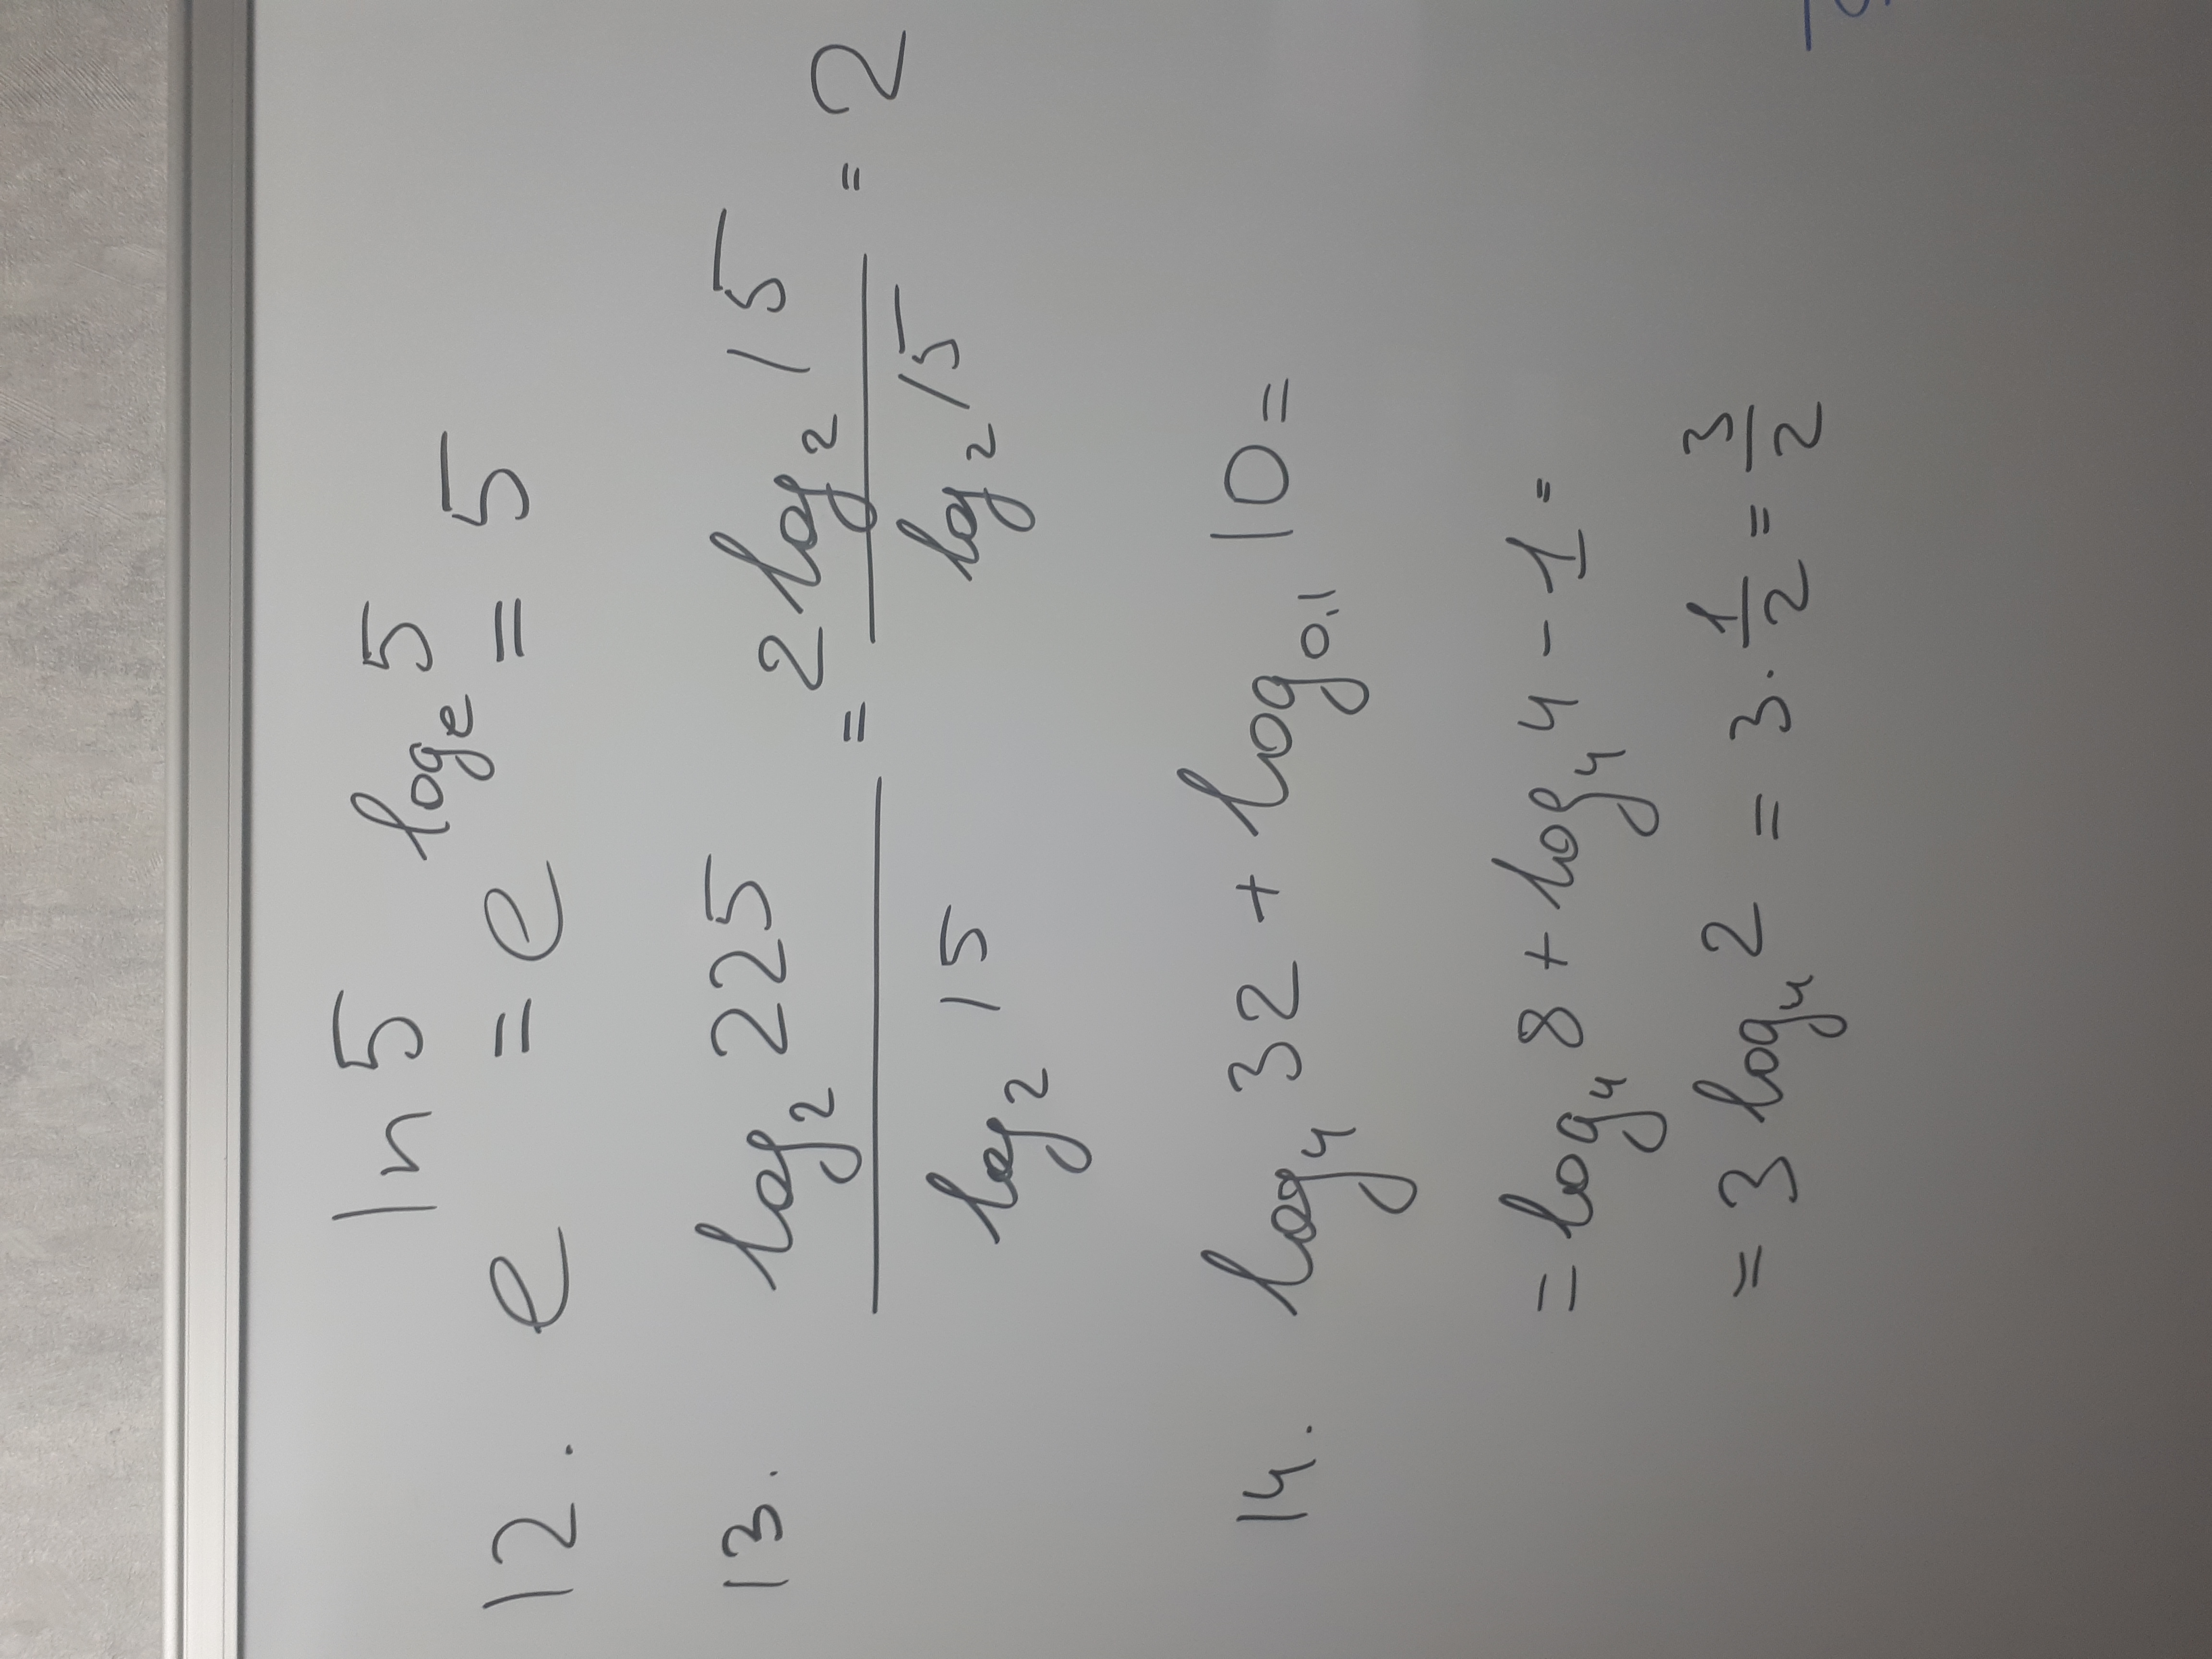 12. e^{ln 5} = e^{log_e 5} = 5
13. \frac{log_2 225}{log_2 15} = \frac{2 log_2 15}{log_2 15} = 2
14. log_4 32 + log_{0,1} 10 =
= log_4 8 + log_4 4 - 1 =
= 3 log_4 2 = 3 · \frac{1}{2} = \frac{3}{2}